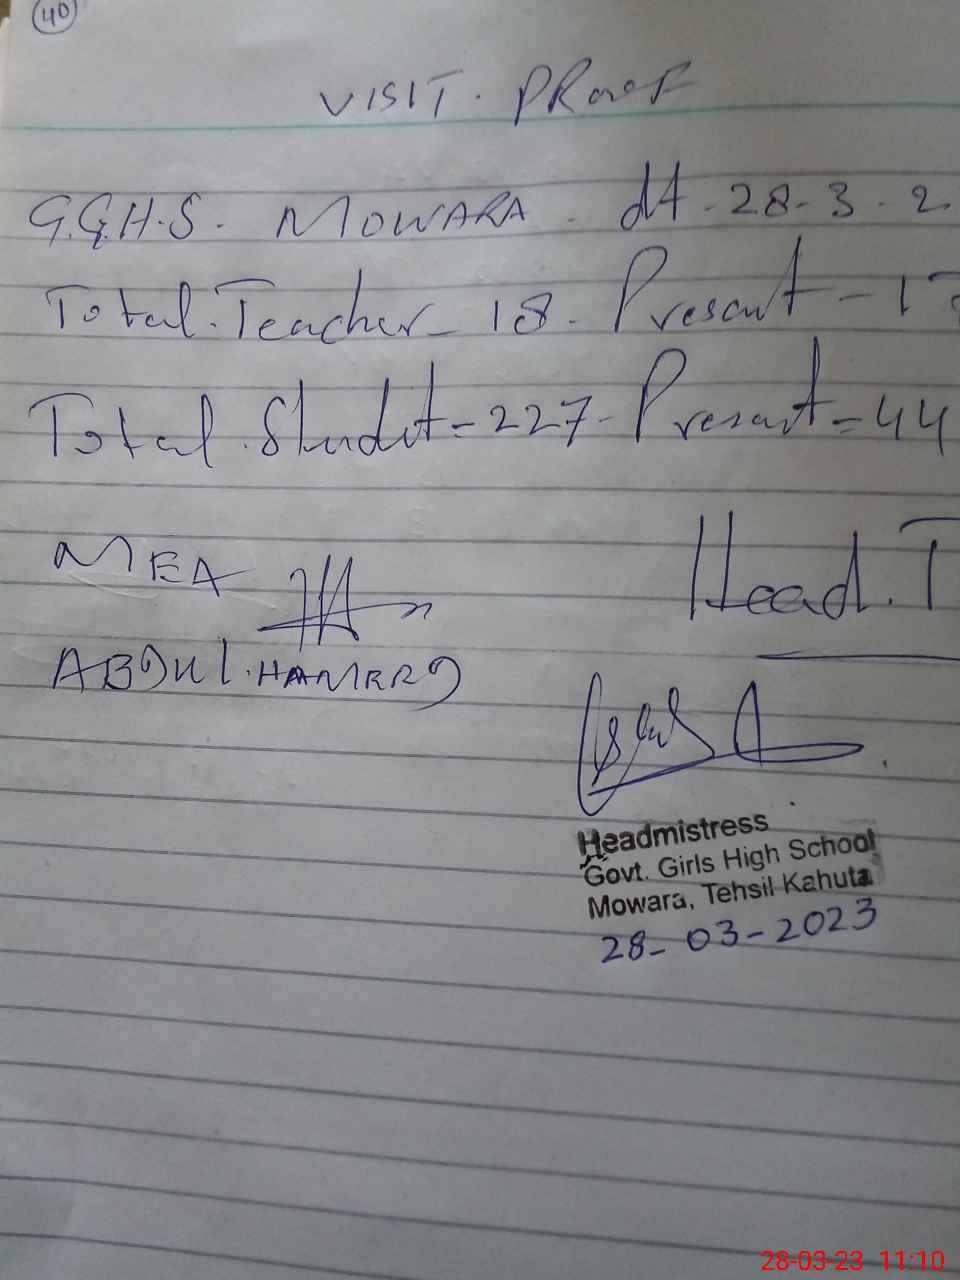 40
VISIT. PRooF
G.G.H.S. MOWARA. dt. 28-3-2
Total. Teacher - 18. Present - 17
Total. Studet = 227 - Present = 44
Head. T
MEA
ABDUL. HAMEED
Headmistress
Govt. Girls High School
Mowara, Tehsil Kahuta
28-03-2023
28-03-23 11:10